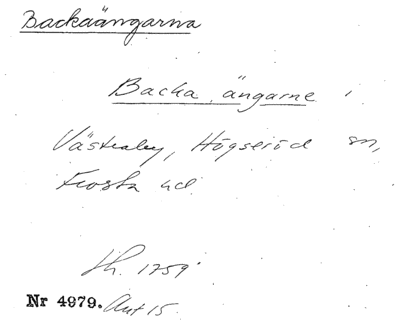 Backaängarna
Backa ängarne i
Västraby, Högseröd sn,
Frosta hd
Lh. 1759
Nr 4979. Akt 15.